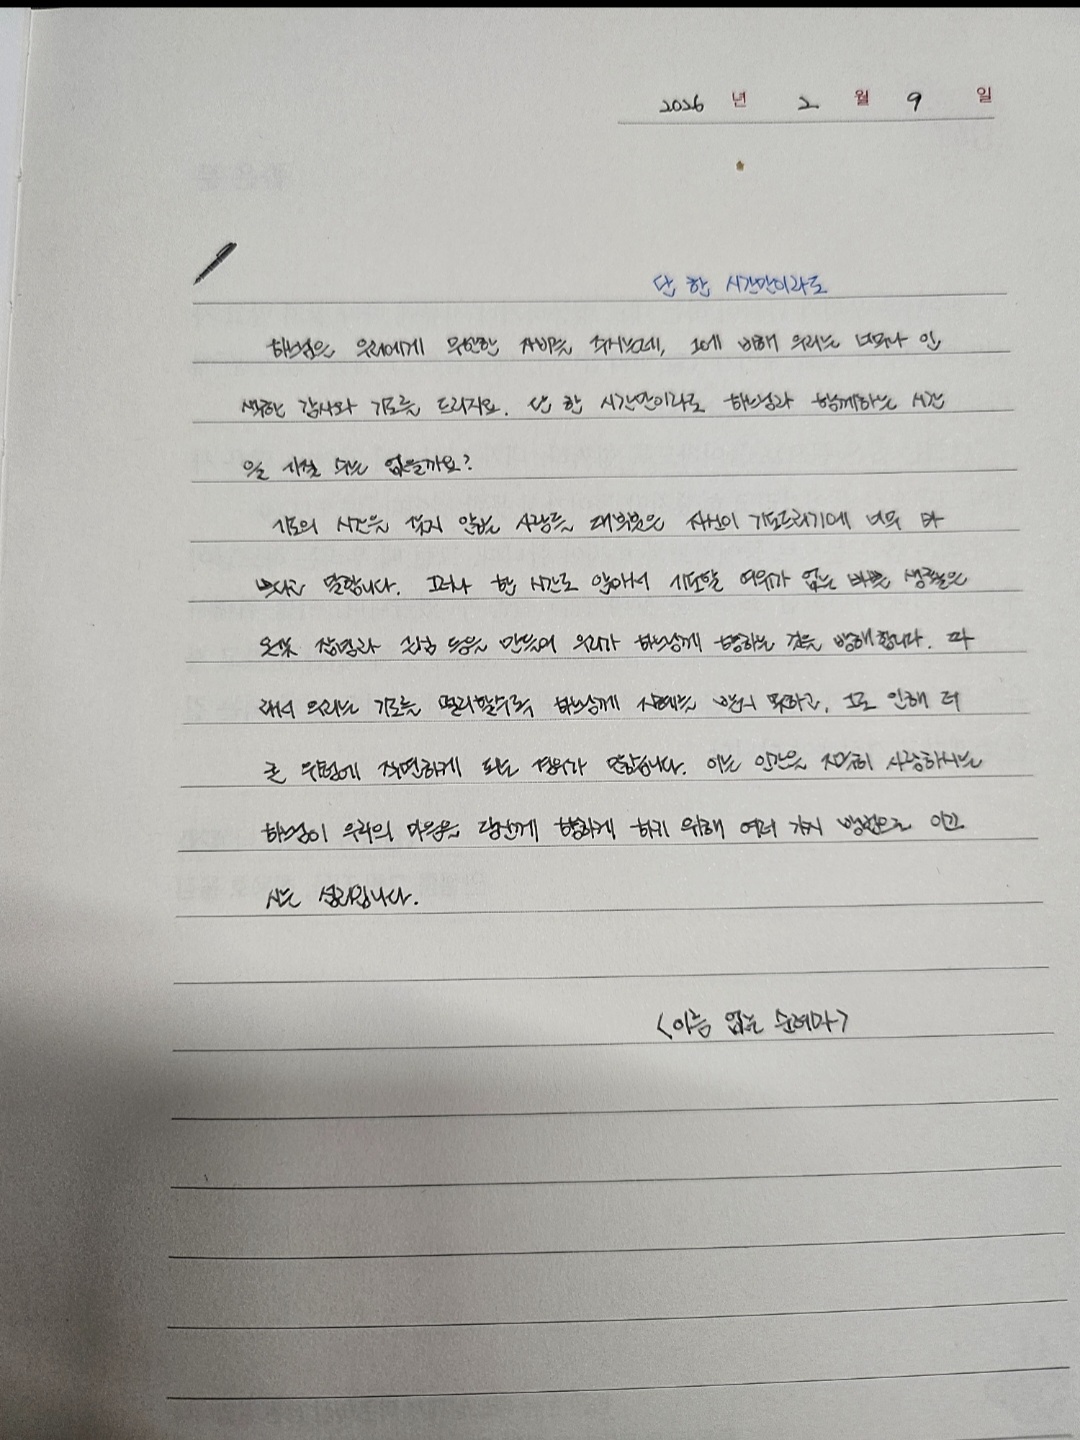 2026 년 2 월 9 일
단 한 시간만이라도
하느님은 우리에게 무한한 자비를 주시는데, 그에 비해 우리는 너무나 인
색한 감사와 기도를 드리지요. 단 한 시간만이라도 하느님과 함께하는 시간
을 가질 수는 없을까요?
기도의 시간을 갖지 않는 사람들 대부분은 자신이 기도드리기에 너무 바
쁘다고 말합니다. 그러나 한 시간도 앉아서 기도할 여유가 없는 바쁜 생활은
온갖 잡념과 근심 등을 만들어 우리가 하느님께 향하는 것을 방해합니다. 따
라서 우리는 기도를 멀리할수록 하느님께 지혜를 받지 못하고, 그로 인해 더
큰 위험에 직면하게 되는 경우가 많습니다. 이는 인간을 지극히 사랑하시는
하느님이 우리의 마음을 당신께 향하게 하기 위해 여러 가지 방법으로 이끄
시는 섭리입니다.
<이름 없는 순례자>